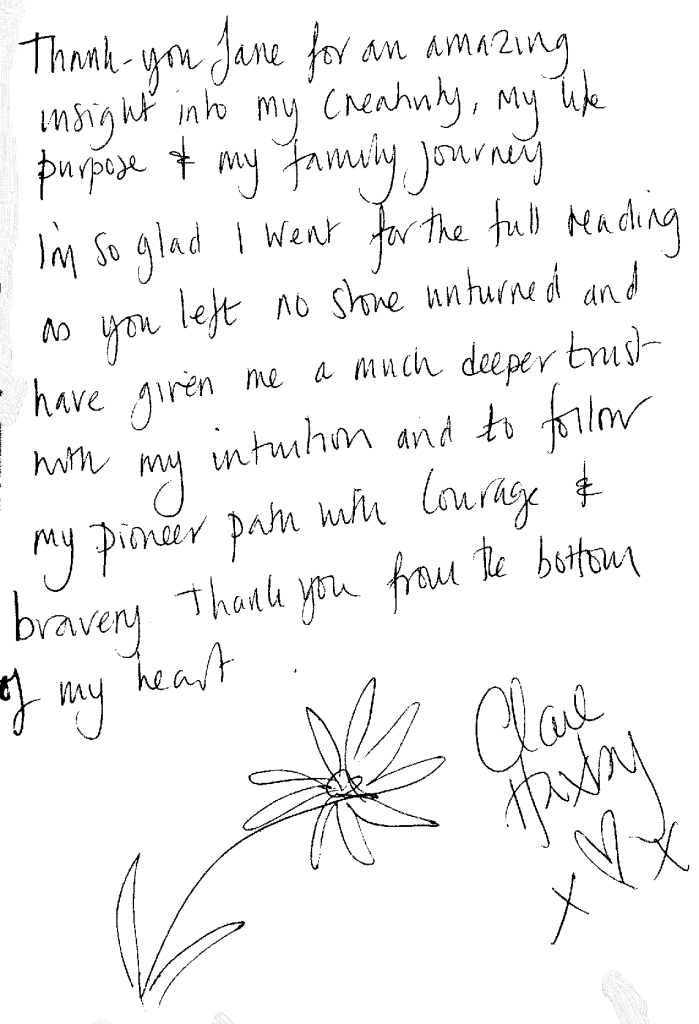 Thank-you Jane for an amazing
insight into my Creativity, my life
purpose & my family journey
I'm so glad I went for the full reading
as you left no stone unturned and
have given me a much deeper trust
with my intuition and to follow
my pioneer path with Courage &
bravery Thank you from the bottom
of my heart
Clare
Haxby
x x